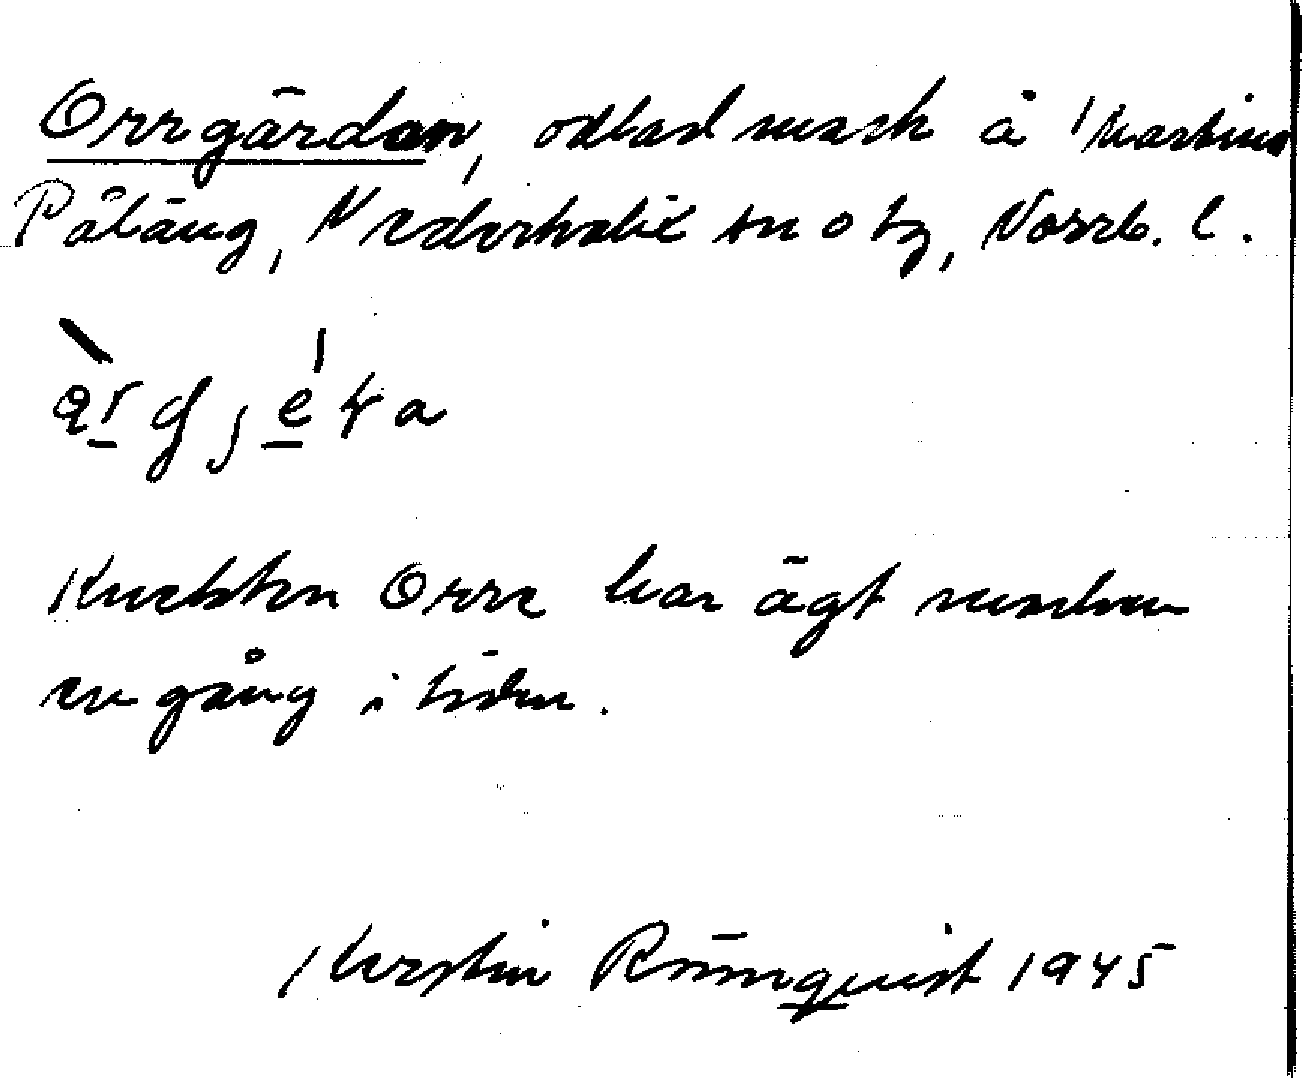 Orrgärdan, odlad mark å Martins
Påläng, Nederkalix sn o tg, Norrb. l.
Knekten Orre har ägt marken
en gång i tiden.
Kerstin Rönnquist 1945